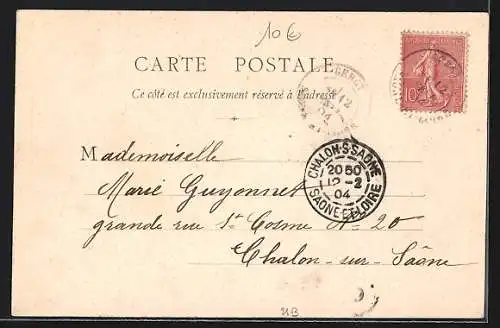 10€
CARTE POSTALE
Ce côté est exclusivement réservé à l'adresse
10
CHALON-S-SAONE
20 50
12-2
04
SAONE ET LOIRE
Mademoiselle
Marie Guyonnet
grande rue St Cosme No 20
Chalon-sur-Saône